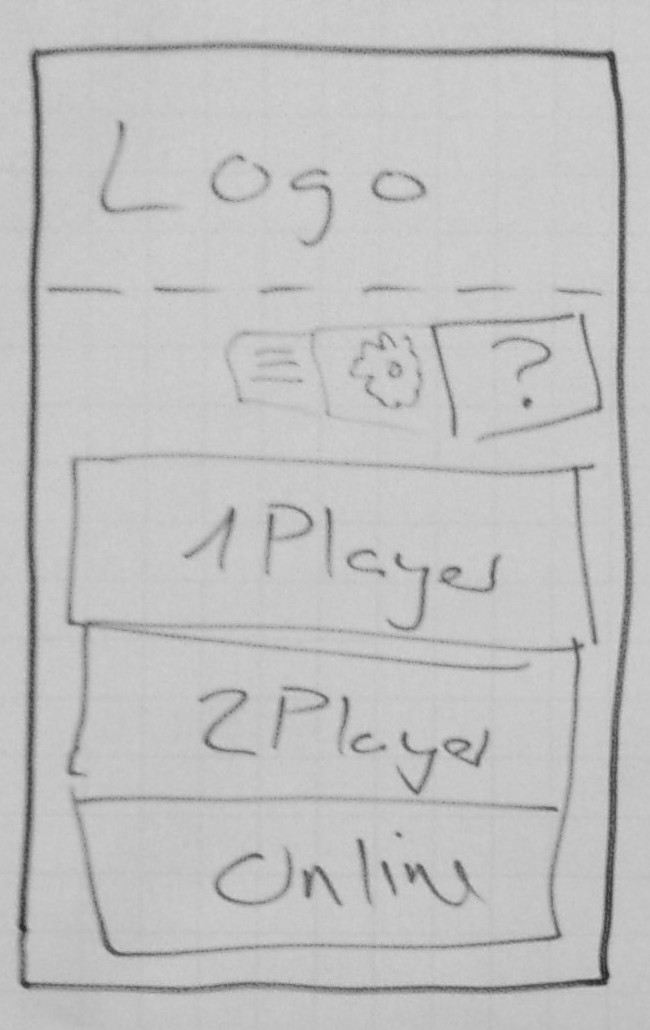 Logo
?
1 Player
2 Player
Online